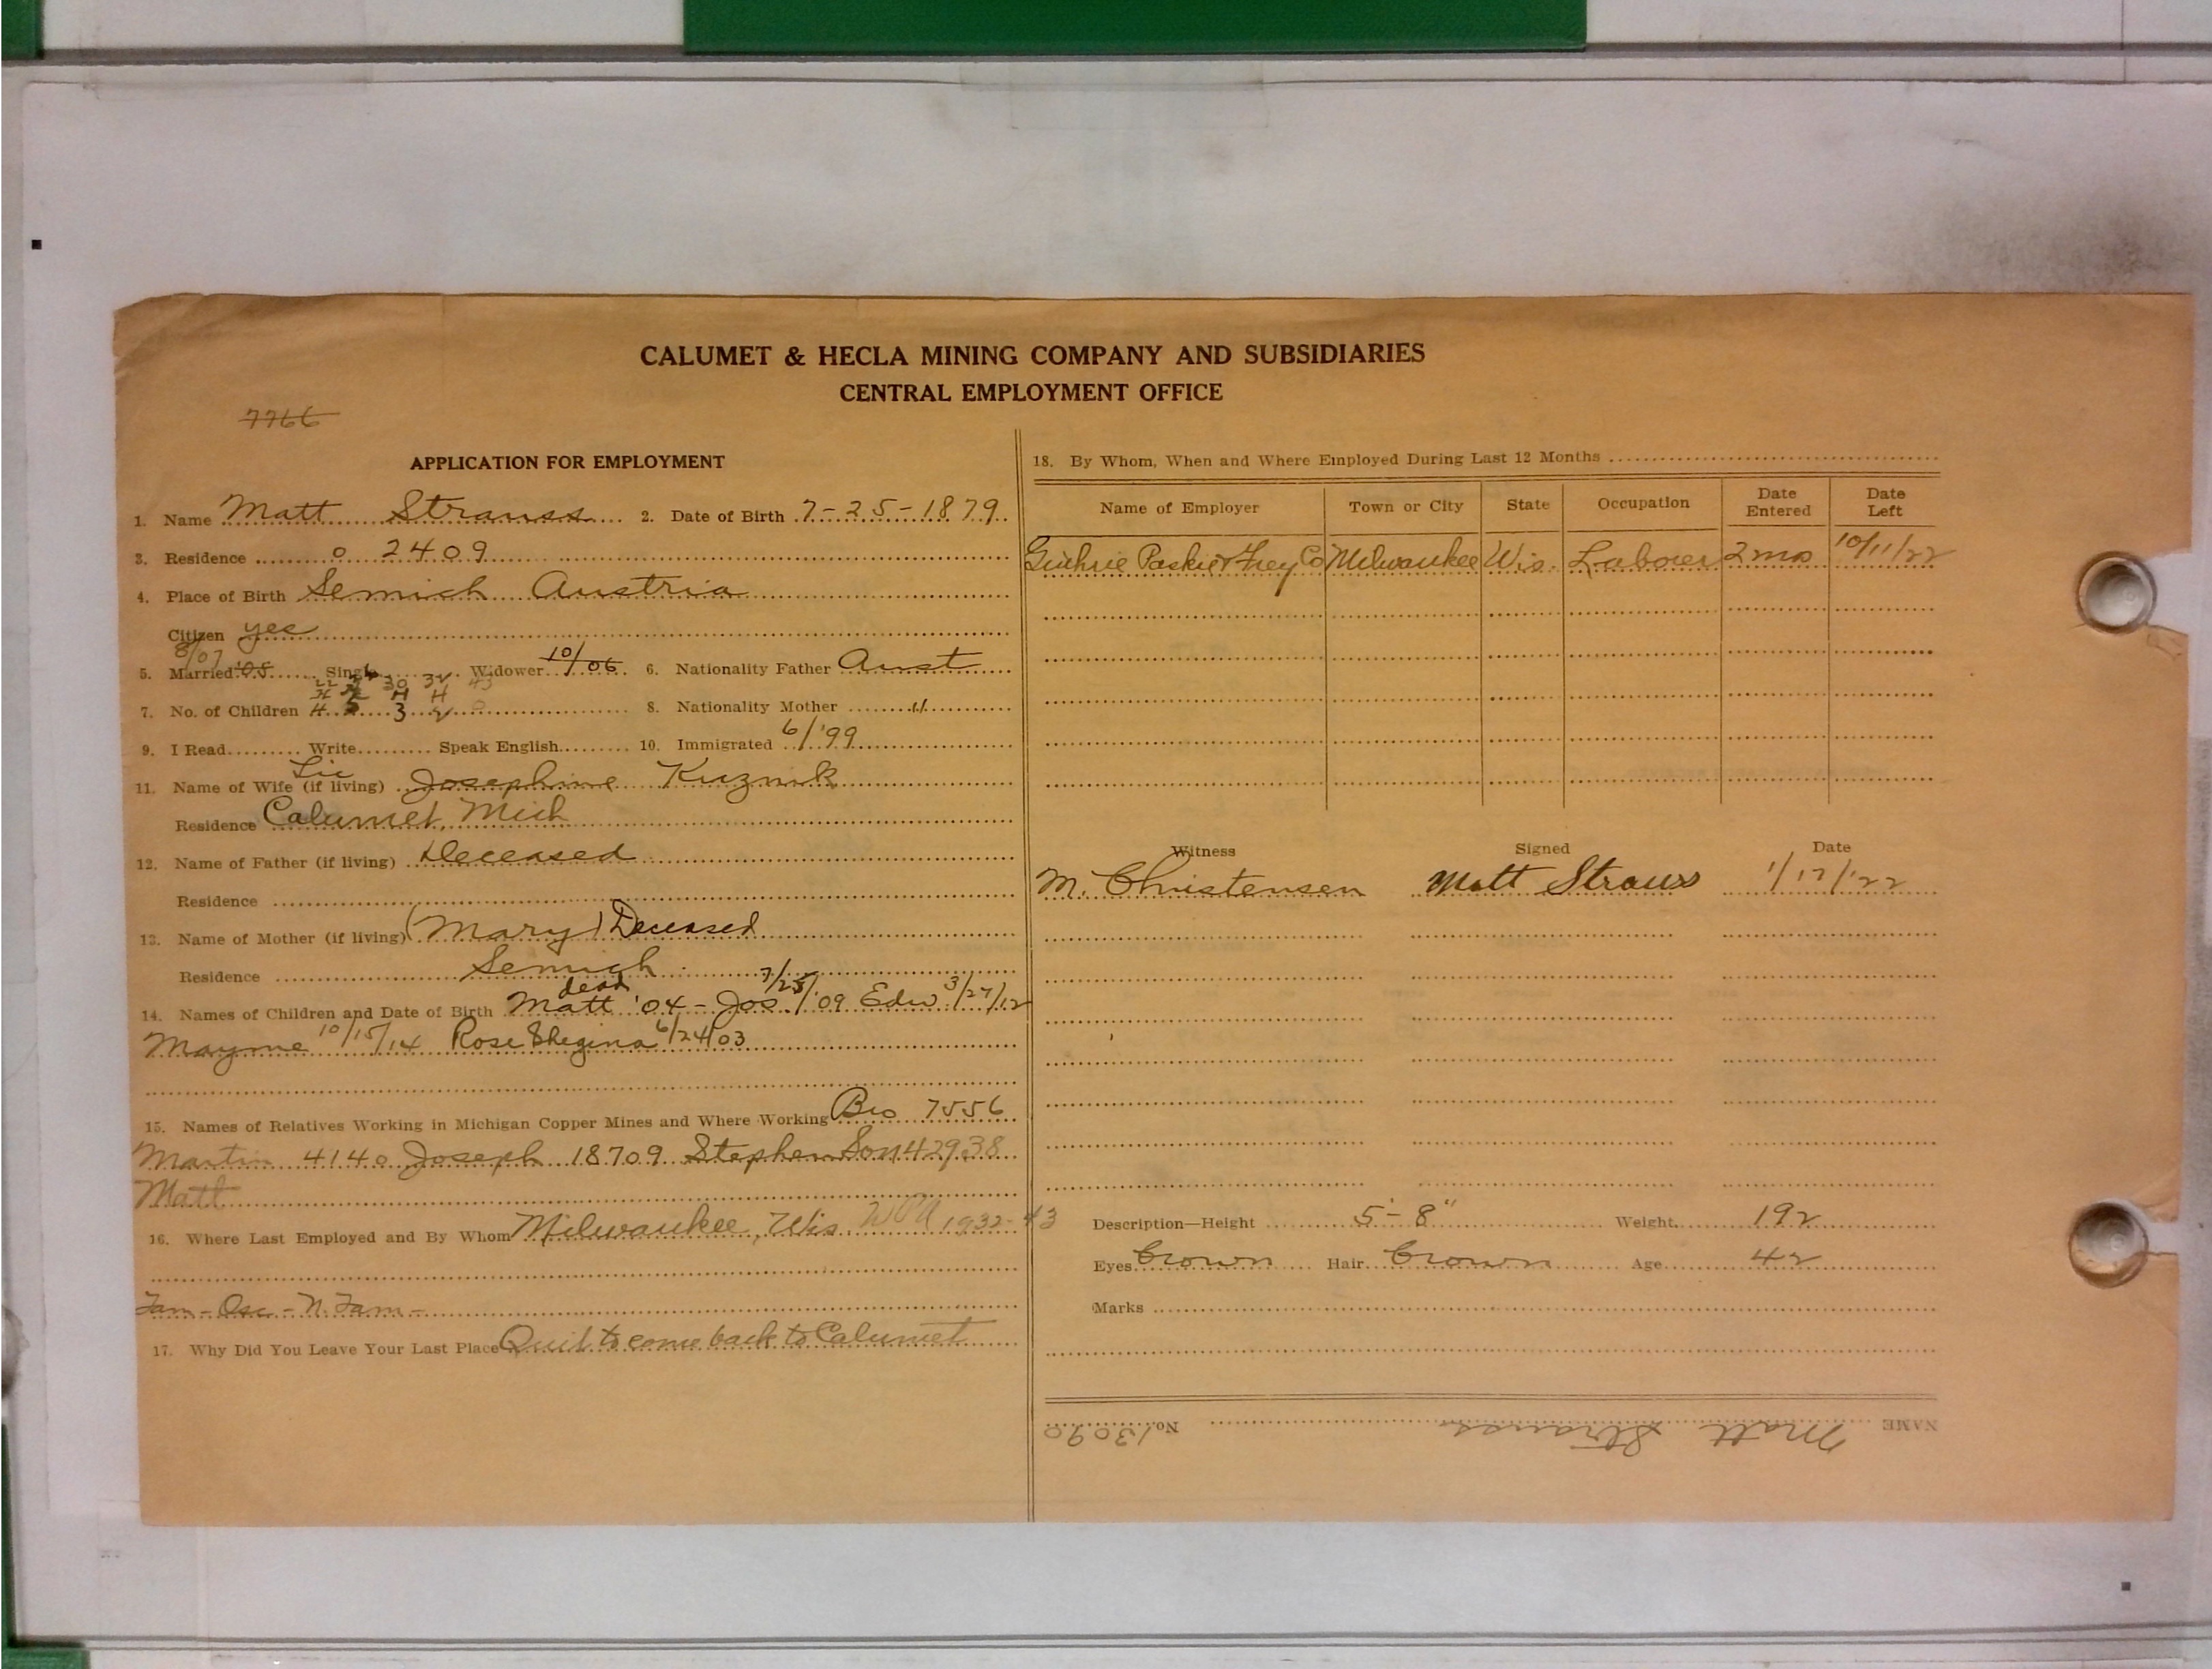 CALUMET & HECLA MINING COMPANY AND SUBSIDIARIES
CENTRAL EMPLOYMENT OFFICE
7766
APPLICATION FOR EMPLOYMENT
1. Name Matt Strauss 2. Date of Birth 7-25-1879
3. Residence o 2409
4. Place of Birth Semich Austria
Citizen yes
8/07
5. Married '08 Single Widower 10/06 6. Nationality Father Aust
30 32 43
7. No. of Children 4 5 3 2 8. Nationality Mother "
9. I Read Write Speak English 10. Immigrated 6/'99
Liv
11. Name of Wife (if living) Josephine Kuznik
Residence Calumet, Mich
12. Name of Father (if living) Deceased
Residence
13. Name of Mother (if living) (Mary) Deceased
Residence Semich
dead
14. Names of Children and Date of Birth Matt '04 - Jos. 7/25/'09 Edw 3/27/12
Mayme 10/15/14 Rose 6/24/03
15. Names of Relatives Working in Michigan Copper Mines and Where Working Bro 7556
Martin 4140 Joseph 18709 Stephen Son 42938
Matt
16. Where Last Employed and By Whom Milwaukee, Wis. WPA 1932-43
Tam - Osc - N. Tam -
17. Why Did You Leave Your Last Place Quit to come back to Calumet
18. By Whom, When and Where Employed During Last 12 Months
Name of Employer Town or City State Occupation Date Entered Date Left
Co Milwaukee Wis. Laborer 2 mos 10/11/22
Witness Signed Date
M. Christensen Matt Strauss 1/17/'22
Description—Height 5'-8" Weight 192
Eyes brown Hair brown Age 42
Marks
NAME Matt Strauss No. 13090